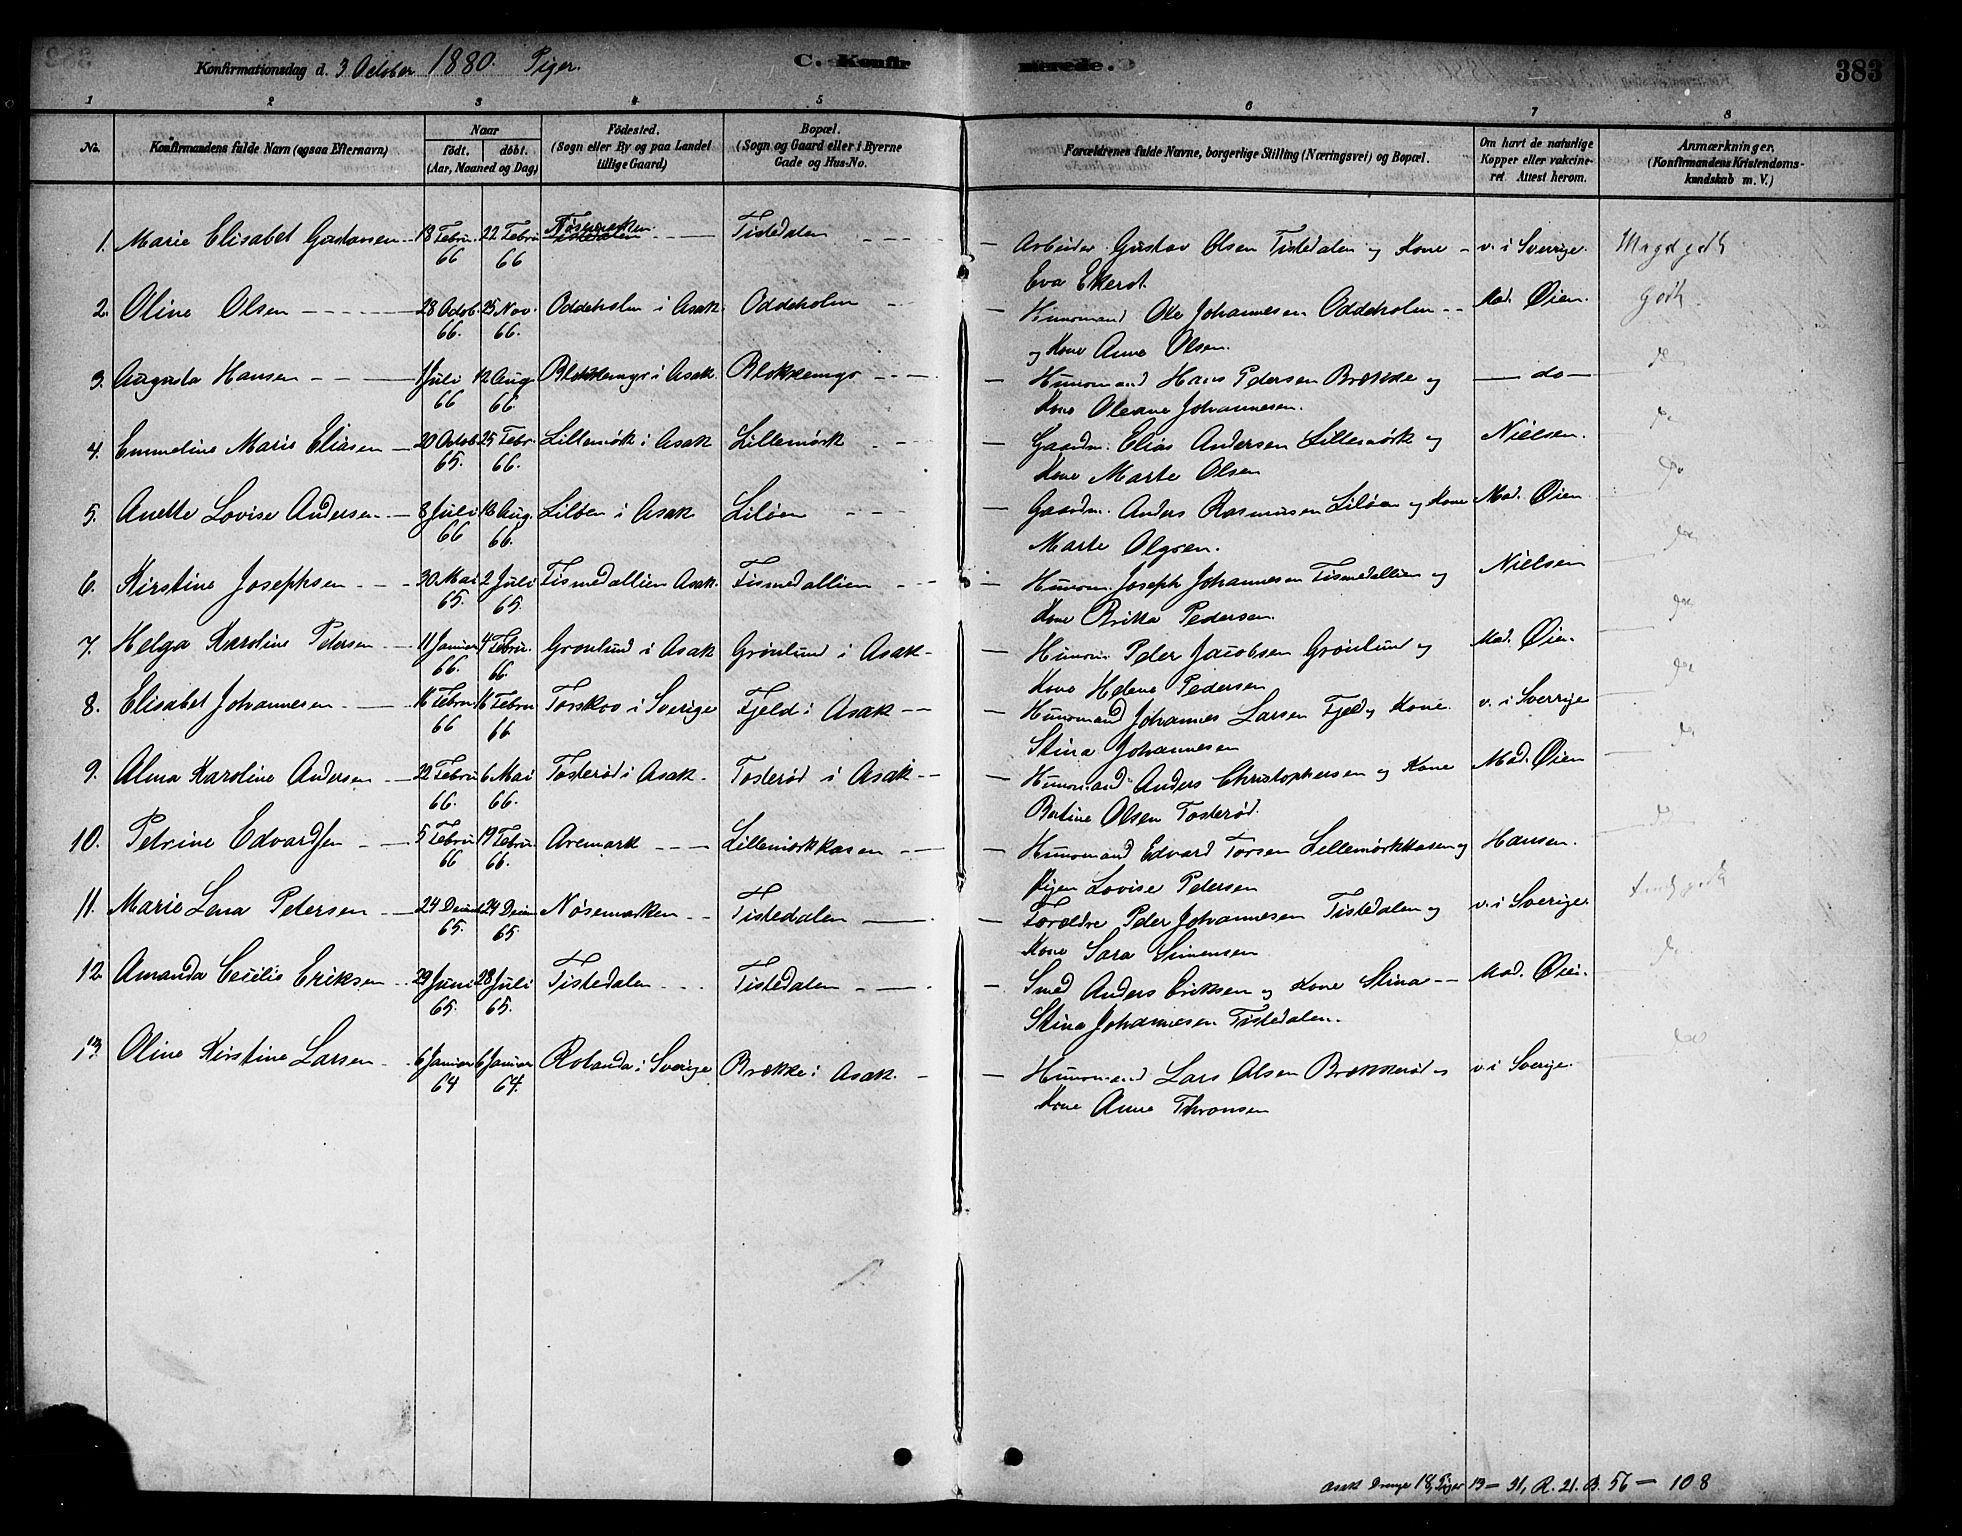 Konfirmationsdag d. 3 October 1880. Piger. C. Konfirmerede. 383
1 2 3 4 5 6 7 8
No. Konfirmandens fulde Navn (ogsaa Efternavn) Naar födt. döbt. (Aar, Maaned og Dag) Födested. (Sogn eller By og paa Landet tillige Gaard) Bopæl. (Sogn og Gaard eller i Byerne Gade og Hus-No. Forældrenes fulde Navne, borgerlige Stilling (Næringsvei) og Bopæl. Om havt de naturlige Kopper eller vakcineret. Attest herom. Anmærkninger. (Konfirmandens Kristendomskundskab m. V.)
1. Marie Elisabet Gustavsen 18 Febru 66 22 Febru 66 Nøsemarken Tistedalen Tistedalen Arbeider Gustav Olsen Tistedalen og Kone v. i Sverige. Meget godt
Eva Ekerot.
2. Oline Olsen 28 Octob. 66. 25 Nov. 66. Oddeholm i Asak. Oddeholm Husmand Ole Johannesen Oddeholm Mad. Øien. Godt.
og Kone Anne Olsen.
3. Augusta Hansen 1 Juli 66 12 Aug 66. Blokkemyr i Asak. Blokkemyr Husmand Hans Pedersen Brække og do do
Kone Oleane Johannesen.
4. Emmeline Marie Eliasen 20 Octob. 65. 25 Febr. 66. Lillemörk i Asak Lillemörk Gaardm. Elias Andersen Lillemörk og Nielsen. do
Kone Marte Olsen
5. Anette Lovise Andersen 8 Juli 66 18 Aug. 66. Liløen i Asak Liløen Gaardm. Anders Rasmusen Liløen og Kone Mad. Øien do
Marte Olgren.
6. Kirstine Josephsen 30 Mai 65. 2 Juli 65. Tismedallien Asak. Tismedallien Husm Joseph Johannesen Tismedallien og Nielsen do
Kone Britta Pedersen.
7. Helga Karoline Petersen 11 Januar 66. 4 Febru. 66. Grönlund i Asak Grönlund i Asak Husm. Peder Jacobsen Grönlund og Mad. Øien. do
Kone Helene Pedersen
8. Elisabet Johannesen 16 Febru 66 16 Febru 66 Torskoo i Sverige Fjeld i Asak Husmand Johannes Larsen Fjeld og Kone. v. i Sverrige do
Stina Johannesen
9. Alma Karoline Andersen 22 Febru 66. 6 Mai 66. Tosterød i Asak. Tosterød i Asak Husmand Anders Christophersen og Kone Mad. Øien do
Bertine Olsen Tosterød.
10. Petrine Edvardsen 5 Febru 66 19 Febru. 66. Aremark Lillemörkkasen Husmand Edvard Torsen Lillemörkkasen og Hansen. do
Pigen Lovise Petersen
11. Marie Lena Petersen 24 Decm 65. 24 Decm 65 Nösemarken Tistedalen Forældre Peder Johannesen Tistedalen og v. i Sverige. godt
Kone Sara Simensen
12. Amanda Cecilie Eriksen 29 Juni 65. 28 Juli 65. Tistedalen Tistedalen Smed Anders Eriksen og Kone Stina Mad. Øien. do
Stina Johannesen Tistedalen.
13. Oline Kirstine Larsen 6 Januar 64 6 Januar 64. Rolanda i Sverige Brække i Asak. Husmand Lars Olsen Brækkerød og v. i Sverige. do
Kone Anne Thronsen
Asak Drenge 18, Piger 13 — 31, R. 21. B. 56 — 108